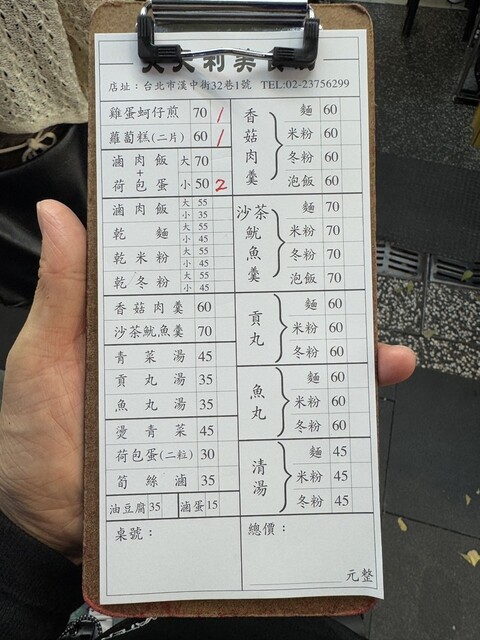 天天利美食坊
店址：台北市漢中街32巷1號 TEL:02-23756299
雞蛋蚵仔煎 70 1
蘿蔔糕(二片) 60 1
滷肉飯+荷包蛋 大 70
小 50 2
滷肉飯 大 55
小 35
乾麵 大 55
小 45
乾米粉 大 55
小 45
乾冬粉 大 55
小 45
香菇肉羹 60
沙茶魷魚羹 70
青菜湯 45
貢丸湯 35
魚丸湯 35
燙青菜 45
荷包蛋(二粒) 30
筍絲滷 35
油豆腐 35 滷蛋 15
桌號：
香菇肉羹 麵 60
米粉 60
冬粉 60
泡飯 60
沙茶魷魚羹 麵 70
米粉 70
冬粉 70
泡飯 70
貢丸 麵 60
米粉 60
冬粉 60
魚丸 麵 60
米粉 60
冬粉 60
清湯 麵 45
米粉 45
冬粉 45
總價：
元整